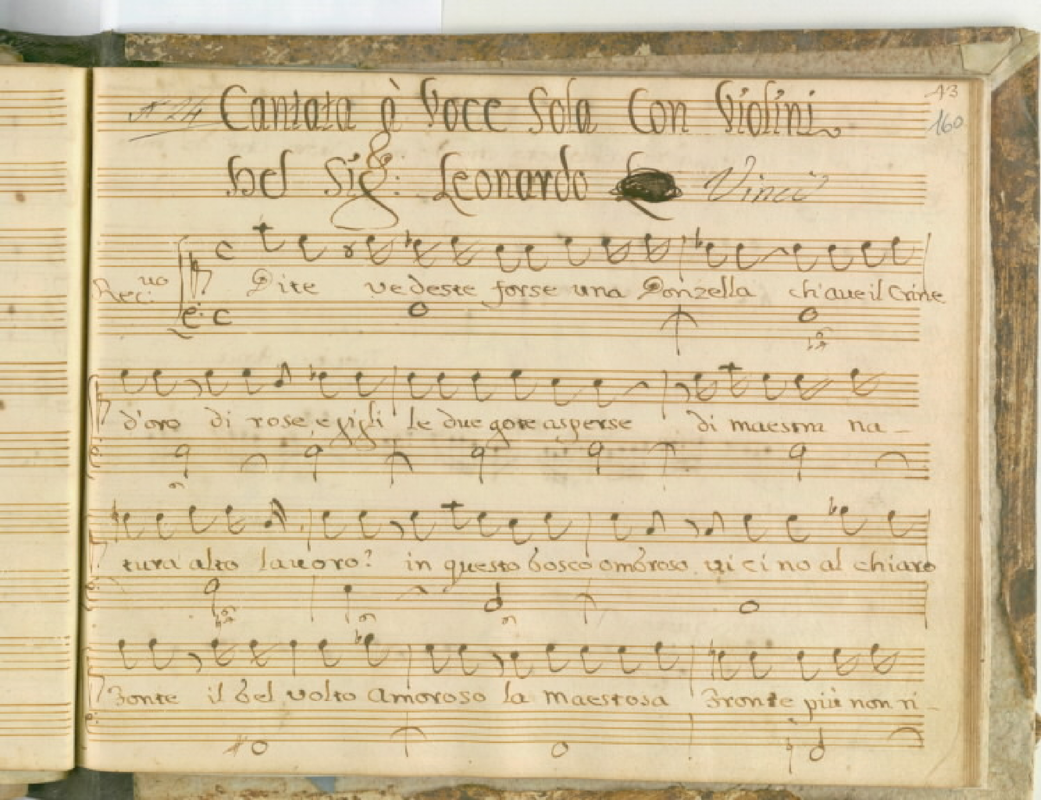 N 24 Cantata à Voce Sola Con Violini
13
160
Del Sig: Leonardo Vinci
Rec:uo
Dite vedeste forse una Donzella ch'aue il Crine
d'oro di rose, e gigli le due gote asperse di maestra na-
tura alto lauoro? in questo bosco ombroso vicino al chiaro
Fonte il bel volto amoroso la maestosa Fronte più non ri-